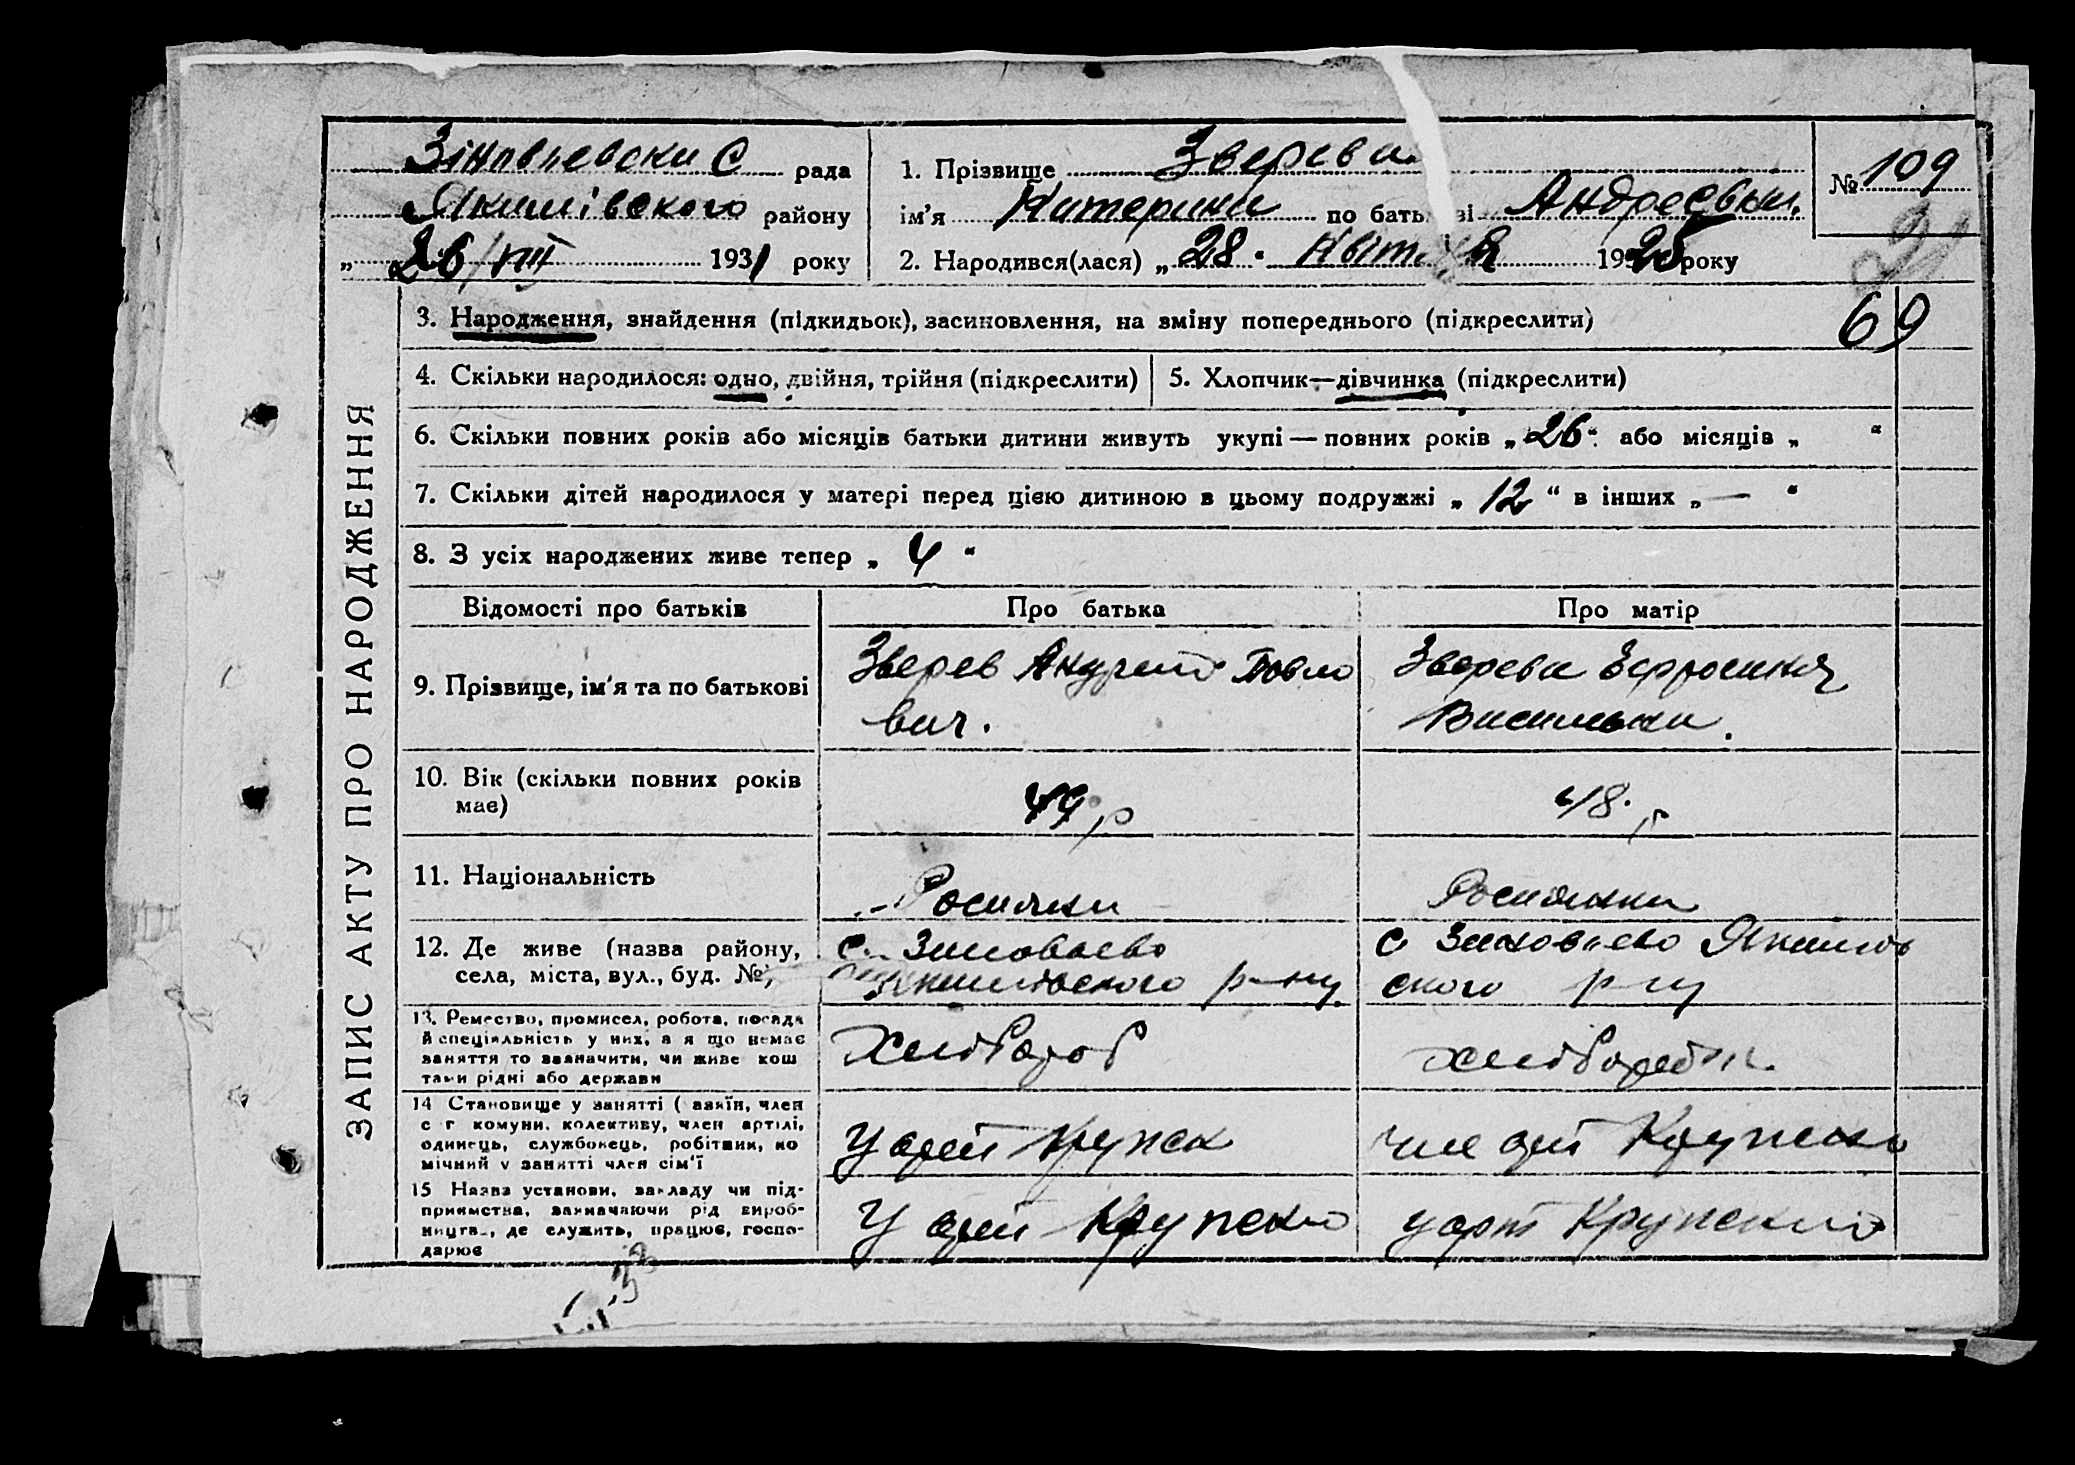 Зіновьевски С рада
Якимівского району
„ 26/VIII 1931 року
1. Прізвище Зверева
ім’я Катерина по батькові Андреевна
2. Народився(лася) „ 28 “ Квітня 1925 року
№ 109
69
ЗАПИС АКТУ ПРО НАРОДЖЕННЯ
3. Народження, знайдення (підкидьок), засиновлення, на зміну попереднього (підкреслити)
4. Скільки народилося: одно, двійня, трійня (підкреслити)
5. Хлопчик—дівчинка (підкреслити)
6. Скільки повних років або місяців батьки дитини живуть укупі — повних років „ 26 “ або місяців „ “
7. Скільки дітей народилося у матері перед цією дитиною в цьому подружжі „ 12 “ в інших „ — “
8. З усіх народжених живе тепер „ 4 “
Відомості про батьків
Про батька
Про матір
9. Прізвище, ім’я та по батькові
Зверев Андрей Павло
вич.
Зверева Ефросиния
Васильевна.
10. Вік (скільки повних років
має)
49 р
48 р
11. Національність
Росіянин
Росиянка
12. Де живе (назва району,
села, міста, вул., буд. №)
с. Зиновьево
Якимівского р-ну.
с Зиновьево Якимов
ского р-ну
13. Ремество, промисел, робота, посада
й спеціяльність у них, а я що немає
заняття то зазначити, чи живе кош
тами рідні або держави
Хлібороб
хліборобка
14 Становище у занятті (хазяїн, член
с г комуни, колективу, член артілі,
одинець, службовець, робітник, по
мічний у занятті член сім’ї
У арті Крупск
чле арт Крупско
15 Назва установи, закладу чи під-
приємства, зазначаючи рід вироб-
ництва, де служить, працює, госпо-
дарює
У арті Крупской
у арт Крупской